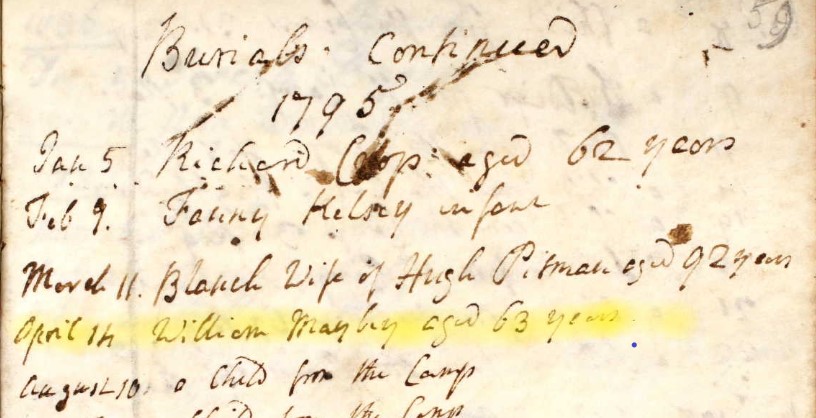 59
Burials. Continued
1795
Jan 5 Richard aged 62 years
Feb 9. Fanny Kelsey infant
March 11. Blanch Wife of Hugh Pitman aged 92 years
April 14 William Maybey aged 63 years
August 10 a Child from the Camp
Child from the Camp